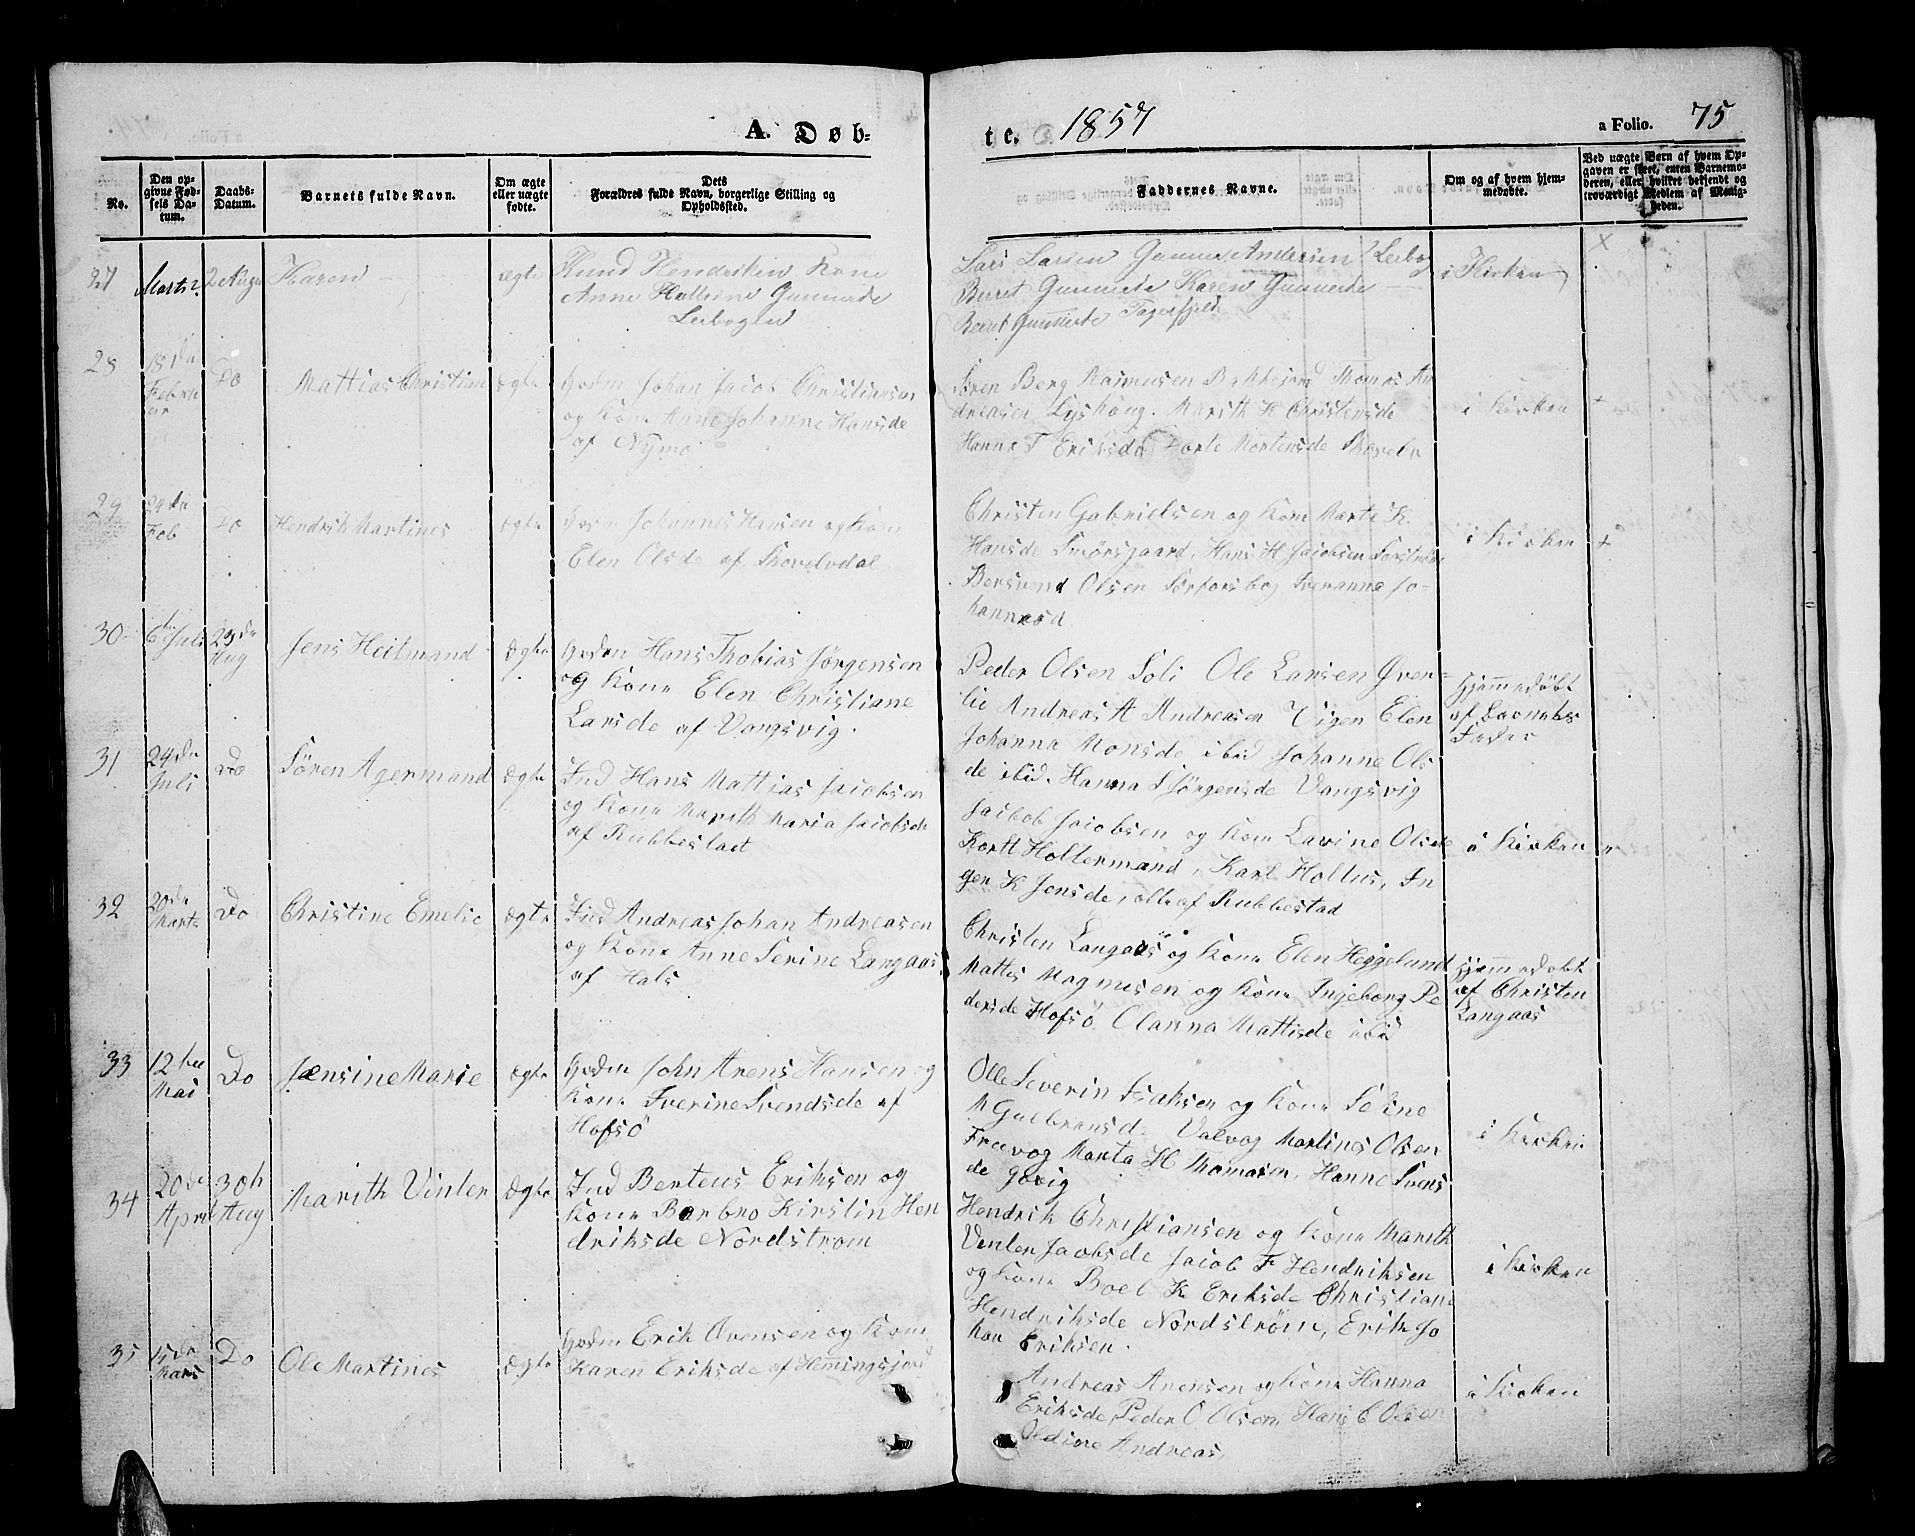 A. Døb-
te. 1857
a Folio. 75
No.
Den op-
givne Fød-
sels Da-
tum.
Daabs-
Datum.
Barnets fulde Navn.
Om ægte
eller uægte
fødte.
Dets
Forældres fulde Navn, borgerlige Stilling og
Opholdssted.
Faddernes Navne.
Om og af hvem hjem-
medøbte.
Ved uægte Børn af hvem Op-
gaven er skeet, enten Barnemo-
deren, eller hvilket bekjendt og
troværdigt Medlem af Menig-
heden.
27
Marts
2 Aug
Karen
ægte
Knud Hendriksen Kone
Anne Gunnersde
Leebogen
Lars Larsen Gunner Andersen
Berret Gunnersde Karen Gunnersde
Berret Gunnersde
i Kirken
x
28
18 da
Febru
ar
Do
Mattias Christian
ægte
Johan Jacob Christiansen
og Kone Anne Johanne Hansde
af Nymo
Søren Berg Rasmusen Thomas An
dreasen Lyshaug. Marith K Christensde
Hanna T Eriksde Dorte Mortensde
i Kirken
+
29
24 da
Feb
Do
Hendrik Martines
ægte
Johannes Hansen og Kone
Elen Olsde af
Christen Gabrielsen og Kone Marte K.
Hansde Smørsgaard, Hans H Jacobsen
Bersvend Olsen Iveranna Jo-
hannesd
i Kirken
+
30
6 Juli
23 da
Aug
Jens Heitmand
ægte
Hans Thobias Jørgensen
og Kone Elen Christiane
Larsde af Vangsvig.
Peder Olsen Soli Ole Larsen Øver-
lie Andreas A Andreasen Vigen Elen
Johanna Monsde ibid Johanne Ols
de ibid. Hanna S Jørgensde Vangsvig
Hjemmedøbt
af Barnets
Fader
31
24 da
Juli
Do
Søren Agermand
ægte
Ind Hans Mattias Jacobsen
og Kone Marith Maria Jacobsde
af Rubbestad
Jacob Jacobsen og Kone Lavine Olsde
Kortt Holtermand, Karl Holtus, In
ger K Jensde, alle af Rubbestad
i Kirken
32
20 da
Marts
Do
Christine Emelie
ægte
Ind Andreas Johan Andreasen
og Kone Anne Serine Langaas
af Hals
Christen Langaas og Kone Elen Heggelund
Mattis Magnusen og Kone Ingeborg Pe
dersde Hofsö Olanna Mattisde ibid
Hjemmedøbt
af Christen
Langaas
33
12 te
Mai
Do
Jænsine Marie
ægte
John Arens Hansen og
Kone Iverine Svendsde af
Hofsö
Olle Severin Isaksen og Kone Seline
M Gulbransd. Valvog Martines Olsen
Marta H Tomasen, Hanne Svens
de
i Kirken
34
20 de
April
30 te
Aug
Marith Vinter
ægte
Ind Berteus Eriksen og
Kone Barbro Kirstin Hen
driksde Nordstrom
Hendrik Christiansen og Kone Marith
Venter Jacobsde Jacob F Hendriksen
og Kone Boel K Eriksde Christiane
Hendriksde Nordstrøm, Erik Jo
han Eriksen.
i Kirken
35
15 da
Mars
Do
Ole Martines
ægte
Erik Arensen og Kone
Karen Eriksde af Hemingsjord
Andreas Arensen og Kone Hanna
Eriksde Peder O Olsen, Hans C Olsen
Oldine Andreas,
i Kirken